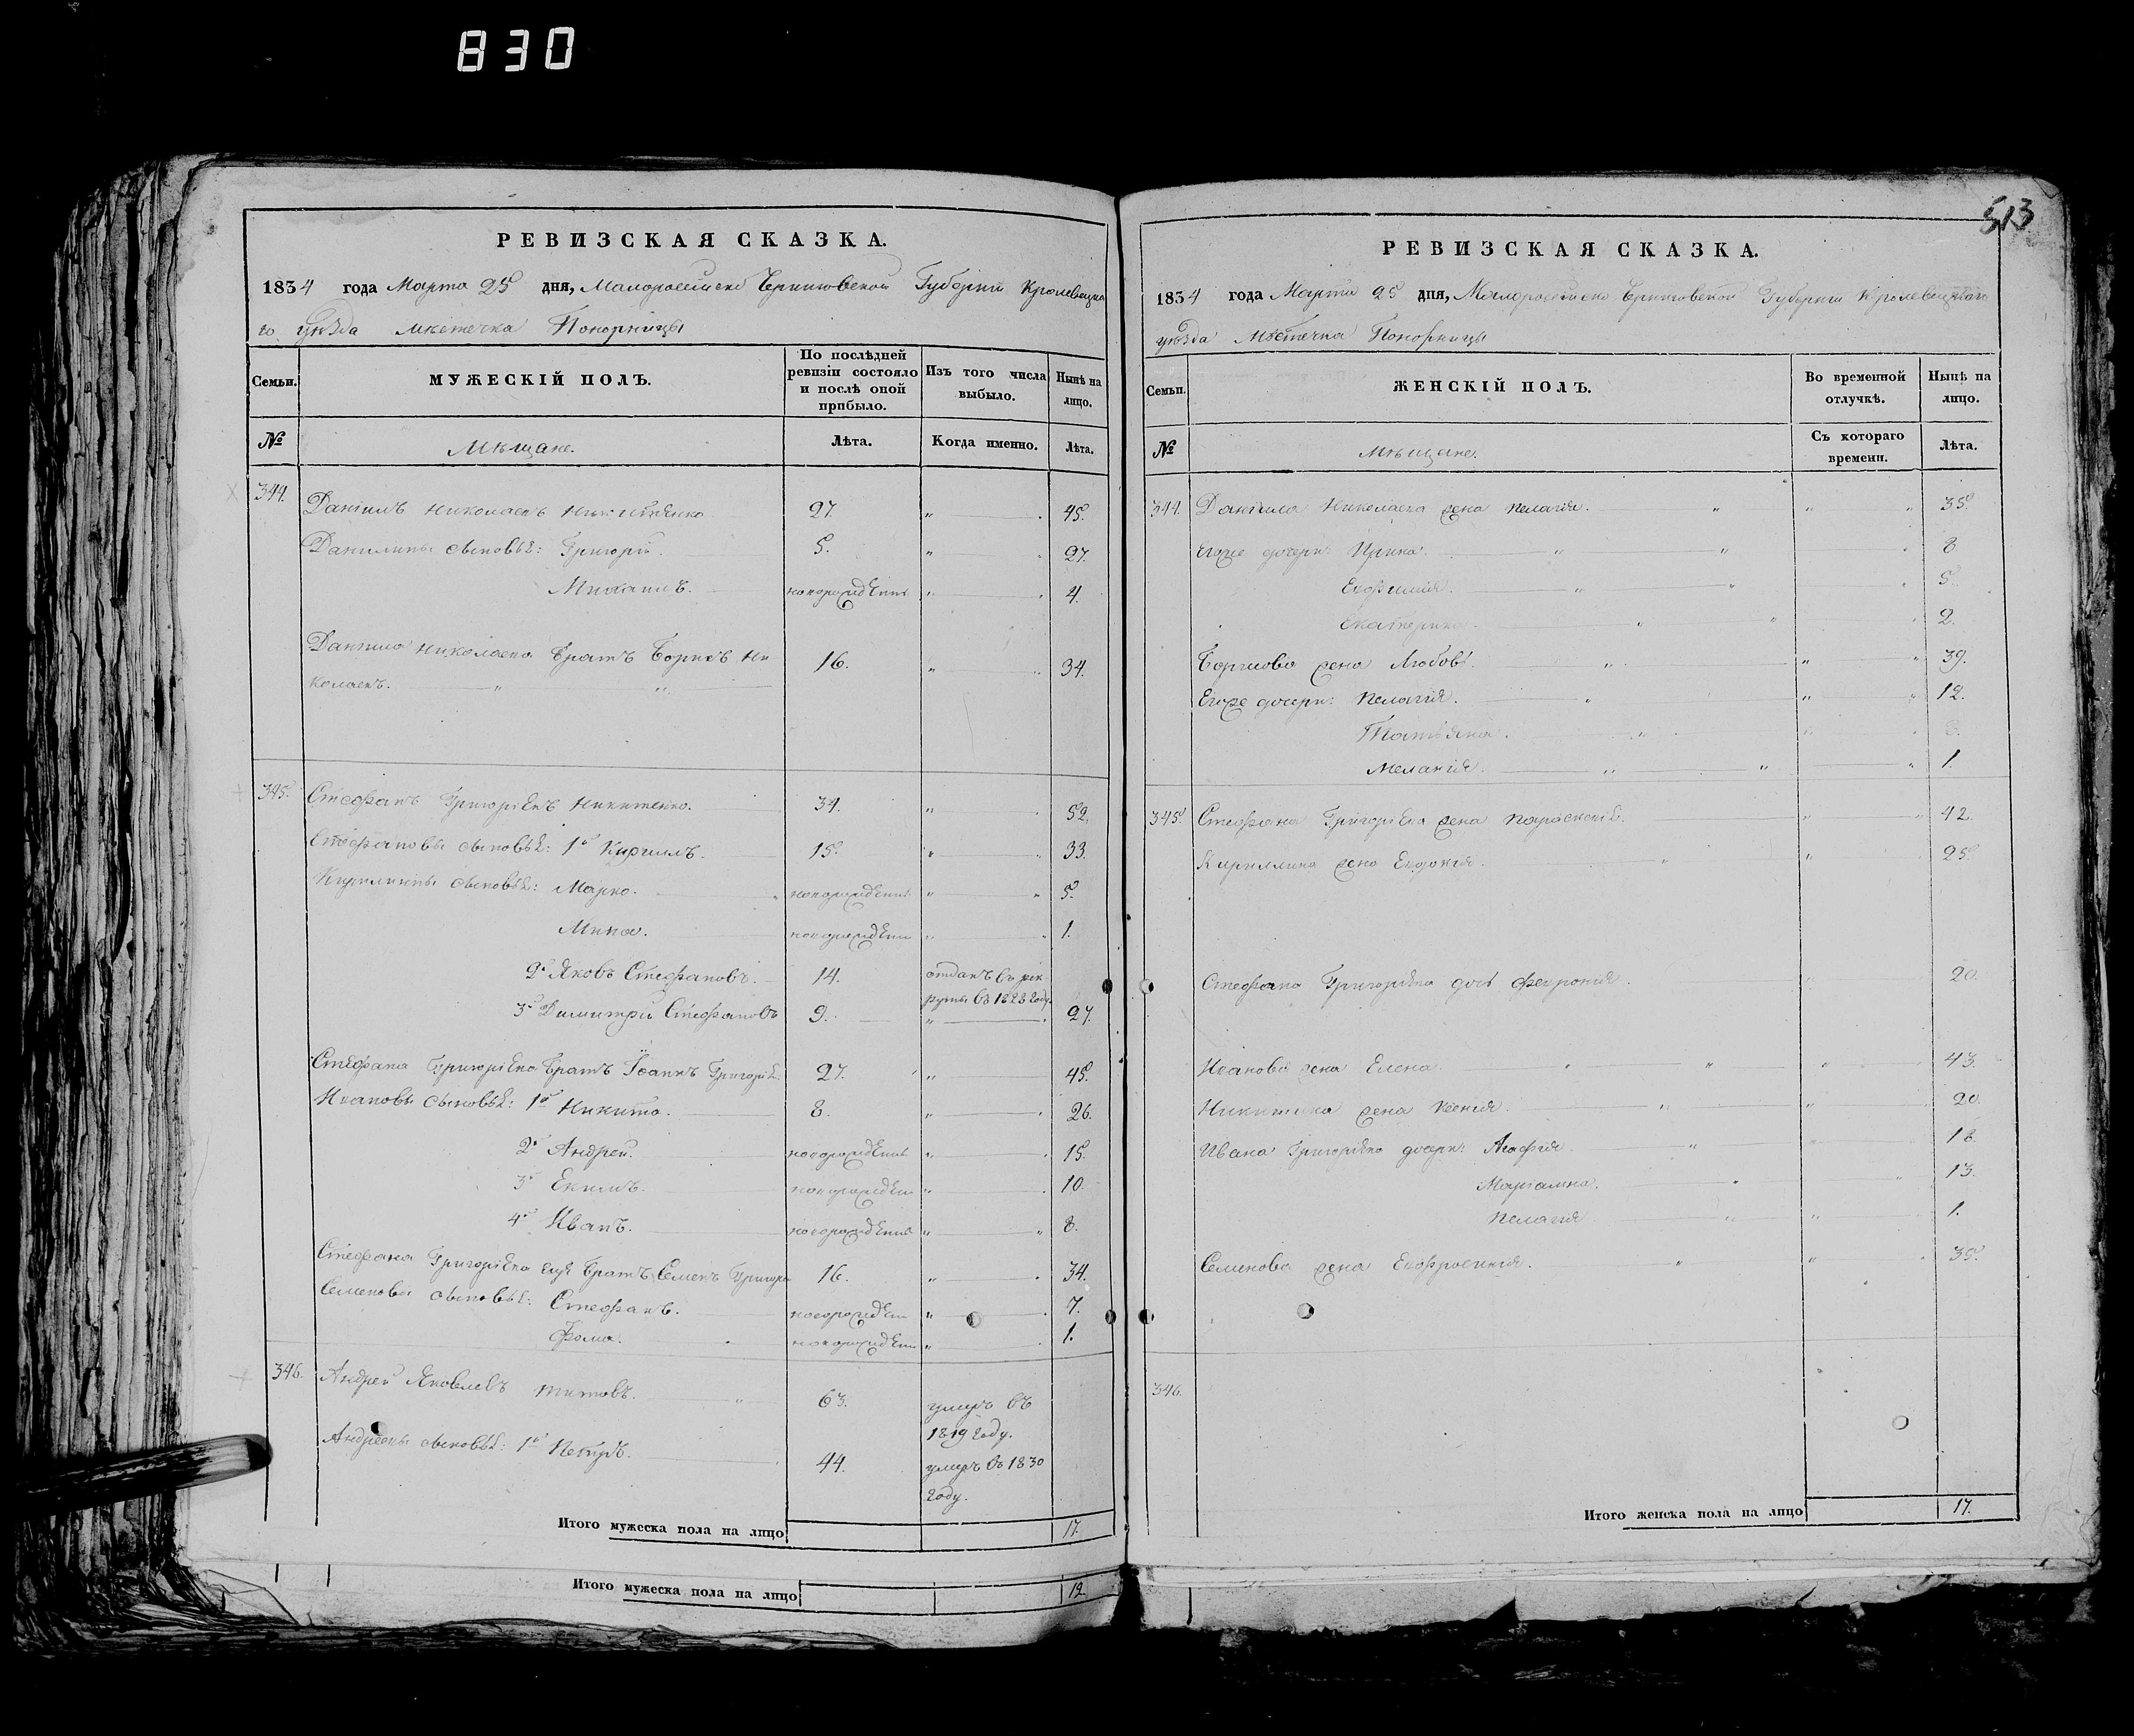 830
513
РЕВИЗСКАЯ СКАЗКА.
1834 года Марта 25 дня, Малоросійско Черниговской Губерніи Кролевецка
го уѣзда мѣстечка Понорницы
Семьи. МУЖЕСКІЙ ПОЛЪ. По послѣдней ревизіи состояло и послѣ оной прибыло. Изъ того числа выбыло. Нынѣ на лицо.
№ Мѣщане. Лѣта. Когда именно. Лѣта.
344. Даніилъ Николаевъ Никитенко 27. " 45.
Данилины сыновья: Григорій. 5. " 27.
Михаилъ. новорожденъ " 4.
Даніила Николаева братъ Борисъ Ни 16. " 34.
колаевъ. " "
345. Стефанъ Григоріевъ Никитенко. 34. " 52.
Стефановы сыновья: 1й Кириллъ. 15. " 33.
Кирилины сыновья: Марко. новорожденъ " 5.
Мина. новорожден " 1.
2й Яковъ Стефановъ. 14. отданъ въ рек
руты въ 1828 году.
3й Димитрій Стефановъ 9. " 27.
Стефана Григоріева братъ Іоаннъ Григоріев 27. " 45.
Ивановы сыновья: 1й Никита. 8. " 26.
2й Андрей. новорожденъ " 15.
3й Екимъ. новорожден " 10.
4й Иванъ. новорожденъ " 8.
Стефана Григоріева еще братъ Семенъ Григорев 16. " 34.
Семеновы сыновья: Стефанъ. новорожден " 7.
Фома. новорожден " 1.
346. Андрей Яковлевъ Титовъ. 63. умеръ въ
1819 году.
Андреевы сыновья: 1й Петръ. 44. умеръ въ 1830
году.
Итого мужеска пола на лицо 17.
Итого мужеска пола на лицо 12.
РЕВИЗСКАЯ СКАЗКА.
1834 года Марта 25 дня, Малоросійско Черниговской Губерніи Кролевецкаго
уѣзда Мѣстечка Понорницы
Семьи. ЖЕНСКІЙ ПОЛЪ. Во временной отлучкѣ. Нынѣ на лицо.
№ Мѣщане. Съ котораго времени. Лѣта.
344. Даніила Николаева жена Пелагія. " " 35.
Егоже дочери: Ирина. " " 8
Евфимія. " " 5.
Екатерина. " " 2.
Борисова жена Любовь. " " 39.
Егоже дочери: Пелагія. " " 12.
Татьяна. " "
Меланія. " " 1.
345. Стефана Григоріева жена Параскевія. " 42.
Кириллина жена Евдокія. " " 25.
Стефана Григоріева дочь Феврония. " 20.
Иванова жена Елена. " " 43.
Никитина жена Ксенія. " " 20.
Ивана Григоріева дочери: Агафія. " " 18.
Маріамна. " 13.
Пелагія " " 1.
Семенова жена Евфросинія. " " 35.
346.
Итого женска пола на лицо 17.